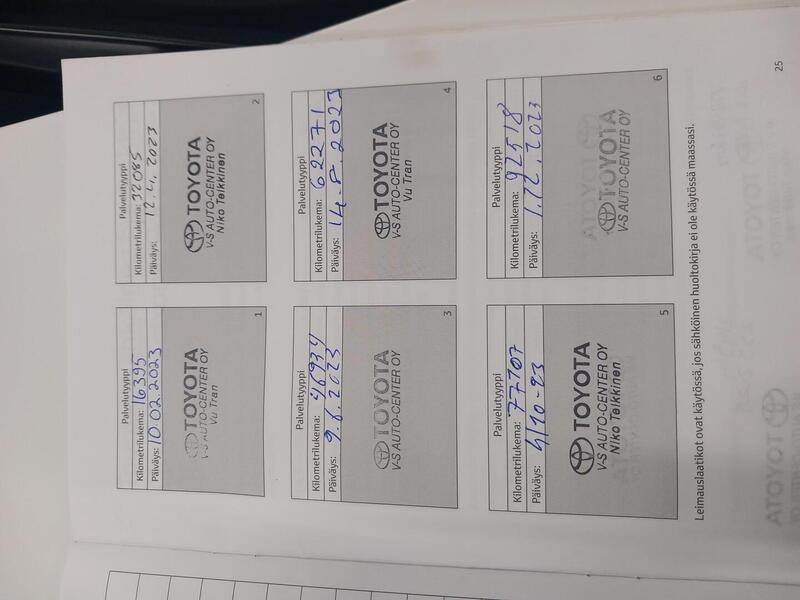 Palvelutyyppi
Kilometrilukema: 16395
Päiväys: 10.02.2023
TOYOTA
V-S AUTO-CENTER OY
Vu Tran
1
Palvelutyyppi
Kilometrilukema: 32085
Päiväys: 12.4.2023
TOYOTA
V-S AUTO-CENTER OY
Niko Teikkinen
2
Palvelutyyppi
Kilometrilukema: 46934
Päiväys: 9.6.2023
TOYOTA
V-S AUTO-CENTER OY
3
Palvelutyyppi
Kilometrilukema: 62271
Päiväys: 14.8.2023
TOYOTA
V-S AUTO-CENTER OY
Vu Tran
4
Palvelutyyppi
Kilometrilukema: 77707
Päiväys: 4/10-23
TOYOTA
V-S AUTO-CENTER OY
Niko Teikkinen
5
Palvelutyyppi
Kilometrilukema: 92518
Päiväys: 1.12.2023
TOYOTA
V-S AUTO-CENTER OY
6
Leimauslaatikot ovat käytössä, jos sähköinen huoltokirja ei ole käytössä maassasi.
25